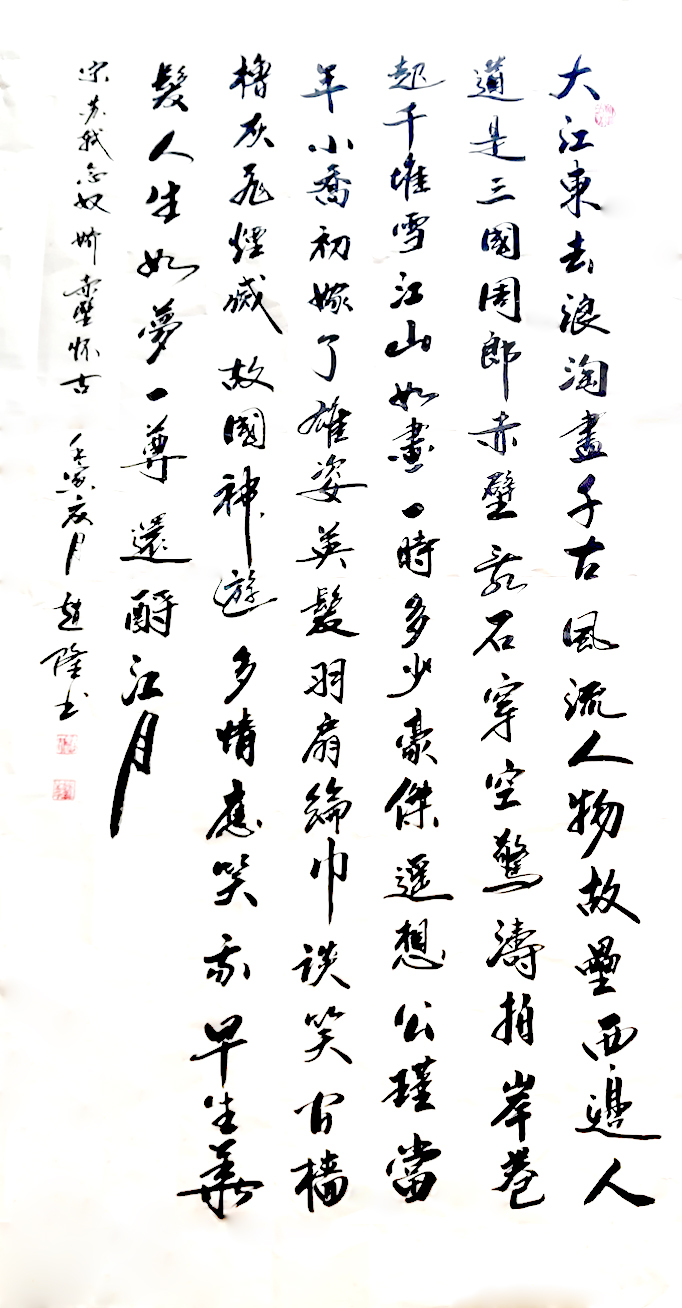 大江東去浪淘盡千古風流人物故壘西邊人
道是三國周郎赤壁乱石穿空驚濤拍岸卷
起千堆雪江山如畫一時多少豪傑遥想公瑾當
年小喬初嫁了雄姿英髮羽扇綸巾談笑間檣
櫓灰飛煙滅故國神遊多情應笑我早生華
髮人生如夢一尊還酹江月
宋苏轼念奴娇赤壁怀古 壬寅夏月趙隆书